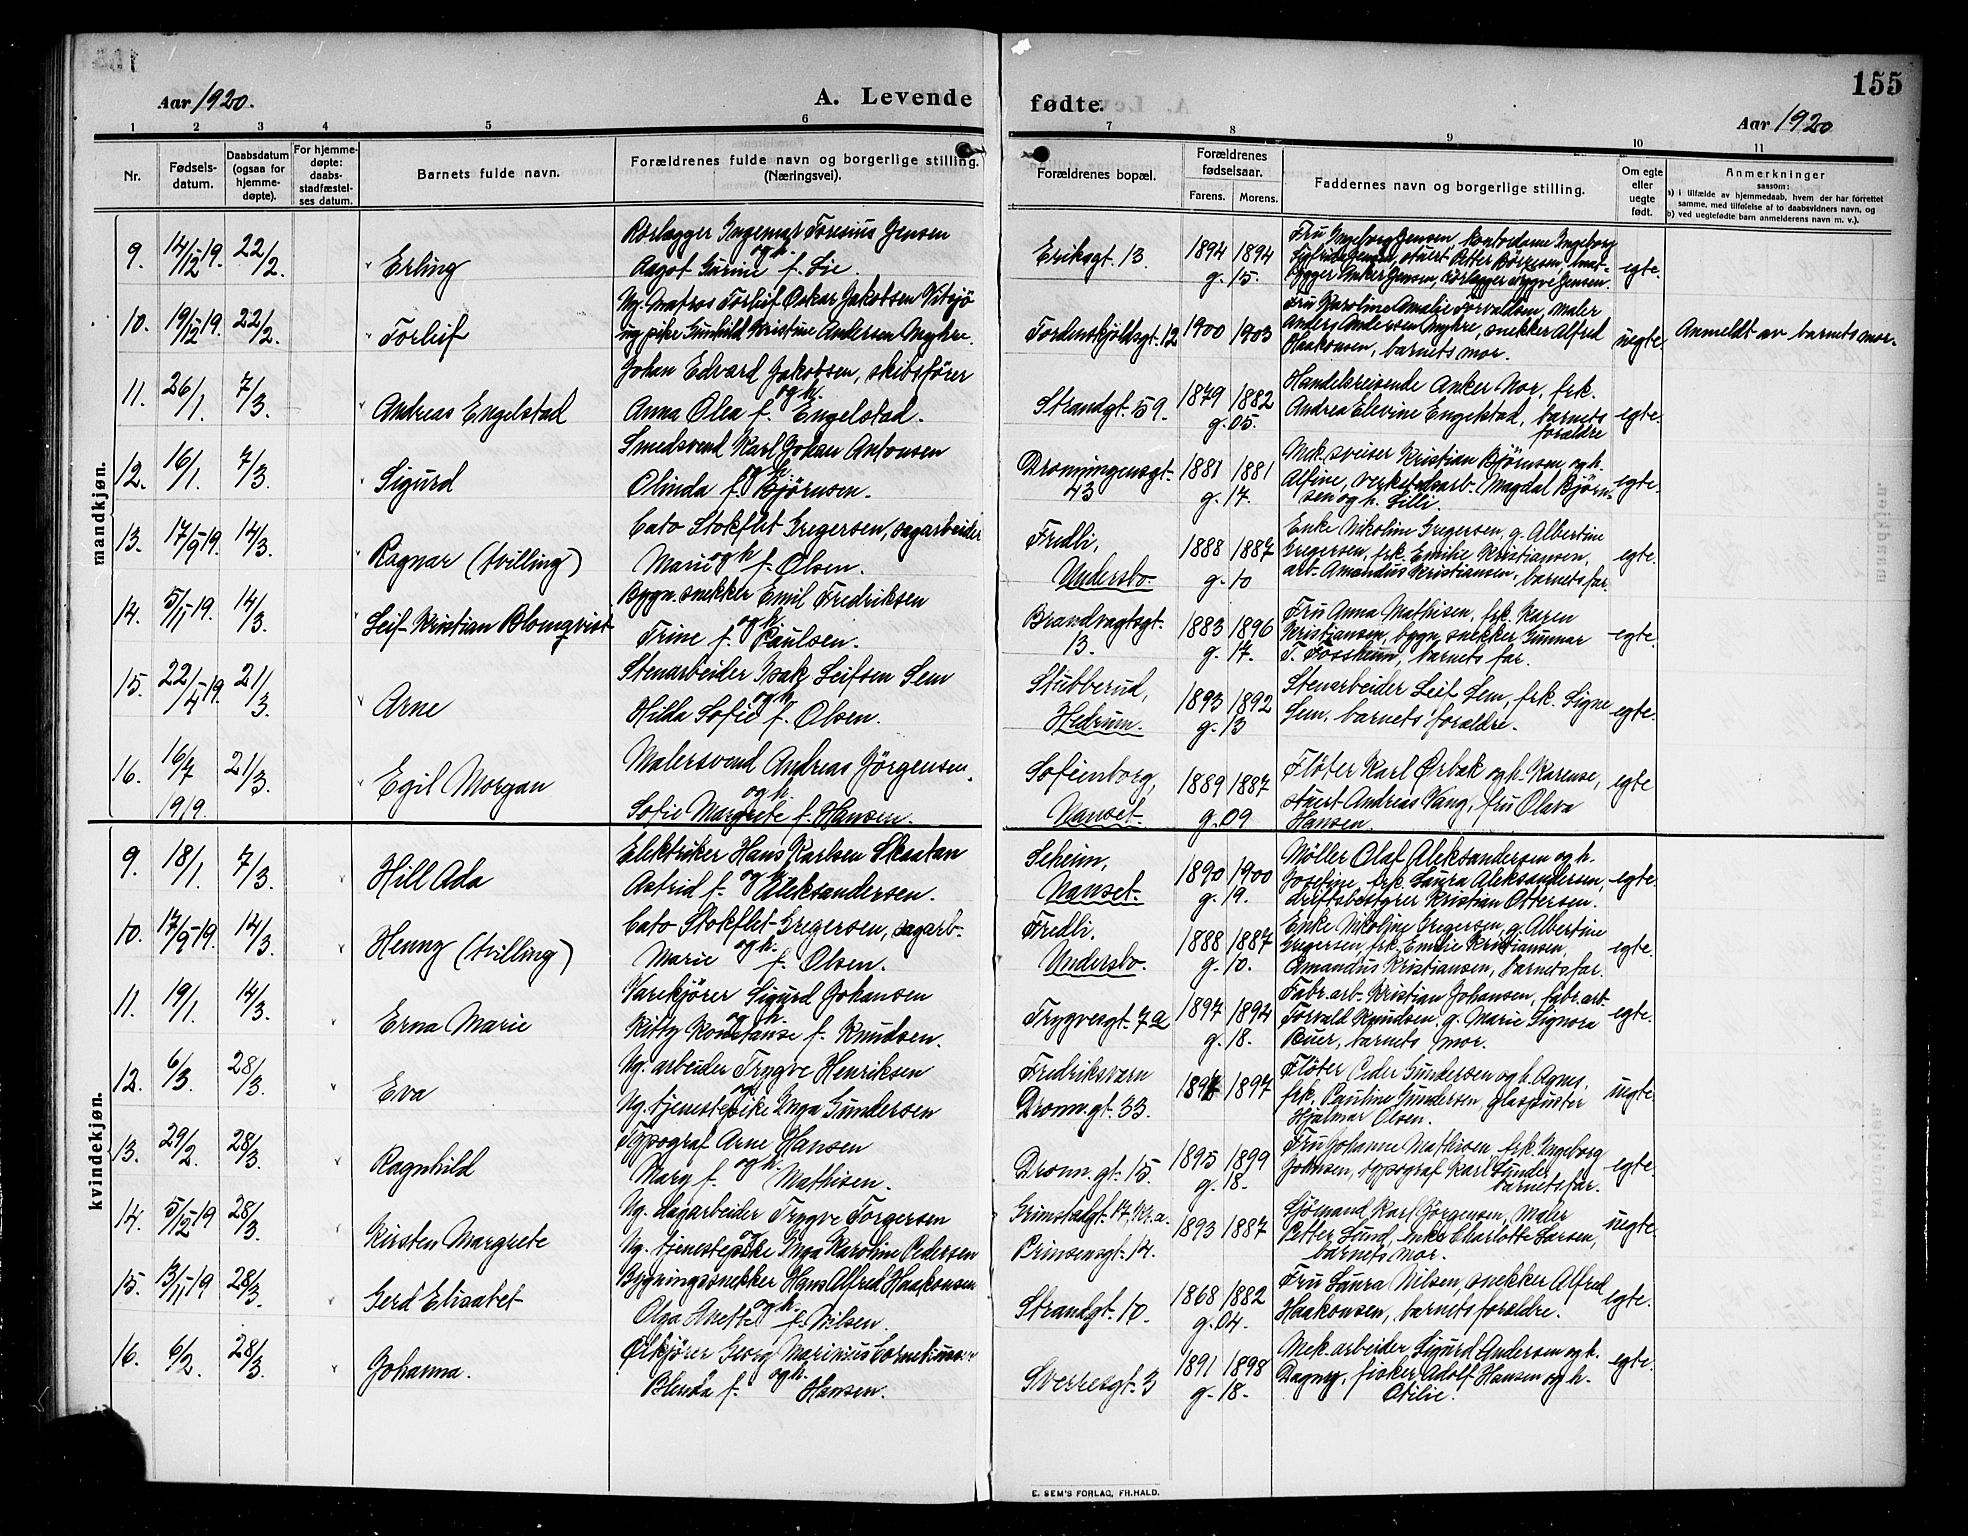 155
Aar 1920.
A. Levende
fødte.
Aar 1920
1 2 3 4 5 6 7 8 9 10 11
Nr.
Fødsels-
datum.
Daabsdatum
(ogsaa for
hjemme-
døpte).
For hjemme-
døpte:
daabs-
stadfæstel-
ses datum.
Barnets fulde navn.
Forældrenes fulde navn og borgerlige stilling.
(Næringsvei).
Forældrenes bopæl.
Forældrenes
fødselsaar.
Farens. Morens.
Faddernes navn og borgerlige stilling.
Om egte
eller
uegte
født.
Anmerkninger
sassom:
a) i tilfælde av hjemmedaab, hvem der har forrettet
samme, med tilføielse af to daabsvidners navn, og
b) ved uegtefødte barn anmelderens navn m. v.).
mandkjøn.
9. 14/12 19. 22/2. Erling
Rørlægger Ingemar Toresius Jensen
og h.
Aagot Gurine f. Lie.
Eriksgt. 13. 1894 1894
g. 15.
Fru Ingeborg Jensen, kontordame Ingeborg
Jensen, stuert Petter Börresen, mat-
bygger Anker Jensen, rörlægger Trygve Jensen.
egte.
10. 19/12 19. 22/2. Torleif
Ug. matros Torleif Oskar Jakobsen Vitsjö
ug pike Gunhild Kristine Andersen Myhre.
Tordenskjoldsgt. 12 1900 1903
Fru Karoline Amalie Torvaldsen, maler
Anders Andersen Myhre, snekker Alfred
Haakonsen, barnets mor.
uegte. Anmeldt av barnets mor.
11. 26/1. 7/3. Andreas Engelstad
Johan Edvard Jakobsen, skibsfører
og h.
Anna Olea f. Engelstad.
Strandgt. 59. 1879 1882
g. 05.
Handelsreisende Anker Mor, frk.
Andrea Elevine Engelstad, barnets
forældre
egte.
12. 16/1. 7/3. Sigurd
Smedsvend Karl Johan Antonsen
og h.
Olinda f. Bjørnsen.
Dronningensgt.
43 1881 1881
g. 17.
Mek. sveiser Kristian Bjørnsen og h.
Alfine, verkstedsarb. Magdal Björn-
sen og h. Lilli.
egte.
13. 17/9 19. 14/3. Ragnar (tvilling)
Cato Stokflet Gregersen, sagarbeider
og h
Marie f. Olsen.
Fredli,
Undersbo. 1888 1887
g. 10
Enke Nikoline Gregersen, g. Albertine
Gregersen, frk. Emilie Kristiansen,
arb. Amandus Kristiansen, barnets far.
egte.
14. 5/11 19. 14/3. Leif Kristian Blomqvist
Bygn. snekker Emil Fredriksen
og h.
Trine f. Paulsen.
Brandvagtsgt.
13. 1883 1896
g. 17.
Fru Anna Mathisen, frk. Karen
Kristiansen, bygn. snekker Gunnar
T. Fossheim, barnets far.
egte.
15. 22/4 19. 21/3. Arne
Stenarbeider Isak Leifsen Sem
og h.
Hilda Sofie f. Olsen.
Stubberud,
Hedrum. 1893 1892
g. 13
Stenarbeider Leif Sem, frk. Signe
Sem, barnets forældre.
egte.
16. 16/7 1919. 21/3. Egil Morgan
Malersvend Andreas Jørgensen
og h.
Sofie Margrete f. Hansen.
Sofienborg,
Nanset. 1889 1887
g. 09
Fløter Karl Ørbak og h. Karense,
stuert Andreas Vang, fru Olava
Hansen.
egte
kvindekjøn.
9. 18/1. 7/3. Hill Ada
Elektriker Hans Karlsen Skaatan
og h.
Astrid f. Aleksandersen.
Seheim,
Nanset. 1890 1900
g. 19.
Møller Olaf Aleksandersen og h.
Josefine, frk. Laura Aleksandersen,
driftsbestyrer Kristian Ottersen.
egte.
10. 17/9 19. 14/3. Henny (tvilling)
Cato Stokflet Gregersen, sagarb.
og h.
Marie f. Olsen.
Fredli.
Undersbo. 1888 1887
g. 10.
Enke Nikoline Gregersen, g. Albertine
Gregersen, frk. Emilie Kristiansen,
Amandus Kristiansen, barnets far.
egte.
11. 19/1. 14/3. Erna Marie
Varekjører Sigurd Johansen
og h.
Kitty Konstanse f. Knudsen.
Trygvesgt. 7a 1897 1894
g. 18.
Fabr. arb. Kristian Johansen, fabr. arb.
Torvald Knudsen, g. Marie Signora
Buer, barnets mor.
egte.
12. 6/3. 28/3. Eva
Ug. arbeider Trygve Henriksen
og
Ug. tjenestepike Inga Gundersen
Fredriksværn
Dronn. gt. 33. 1897 1897
Fløter Peder Gundersen og h. Agnes,
frk. Pauline Gundersen, glaspuster
Hjalmar Olsen.
uegte.
13. 29/2. 28/3. Ragnhild
Typograf Arne Hansen
og h.
Mary f. Mathisen.
Dronn. gt. 15. 1895 1899
g. 18.
Fru Johanne Mathisen, frk. Ingeborg
Johnsen, typograf Karl Lunde,
barnets far.
egte.
14. 5/12 19 28/3. Kirsten Margrete
Ug. sagarbeider Trygve Torgersen
og
Ug. tjenestepike Inga Karoline Pedersen
Prinsensgt. 14. 1893 1887
Sjömand Karl Jörgensen, maler
Petter Lund, enke Charlotte Larsen,
barnets mor.
uegte.
15. 13/11 19 28/3. Gerd Elisabet
Bygningssnekker Hans Alfred Haakonsen
og h.
Olga Anette f. Nilsen.
Strandgt. 10. 1868 1882
g. 04.
Fru Laura Nilsen, snekker Alfred
Haakonsen, barnets forældre.
egte.
16. 6/2. 28/3. Johanna.
Ølkjører Georg Marinius Corneliussen
og h.
Blenda f. Hansen.
Sverresgt. 3 1891 1898
g. 18.
Mek. arbeider Sigurd Andersen og h.
Dagny, fisker Adolf Hansen og h.
Otilie.
egte.
E. SEM'S FORLAG, FR.HALD.